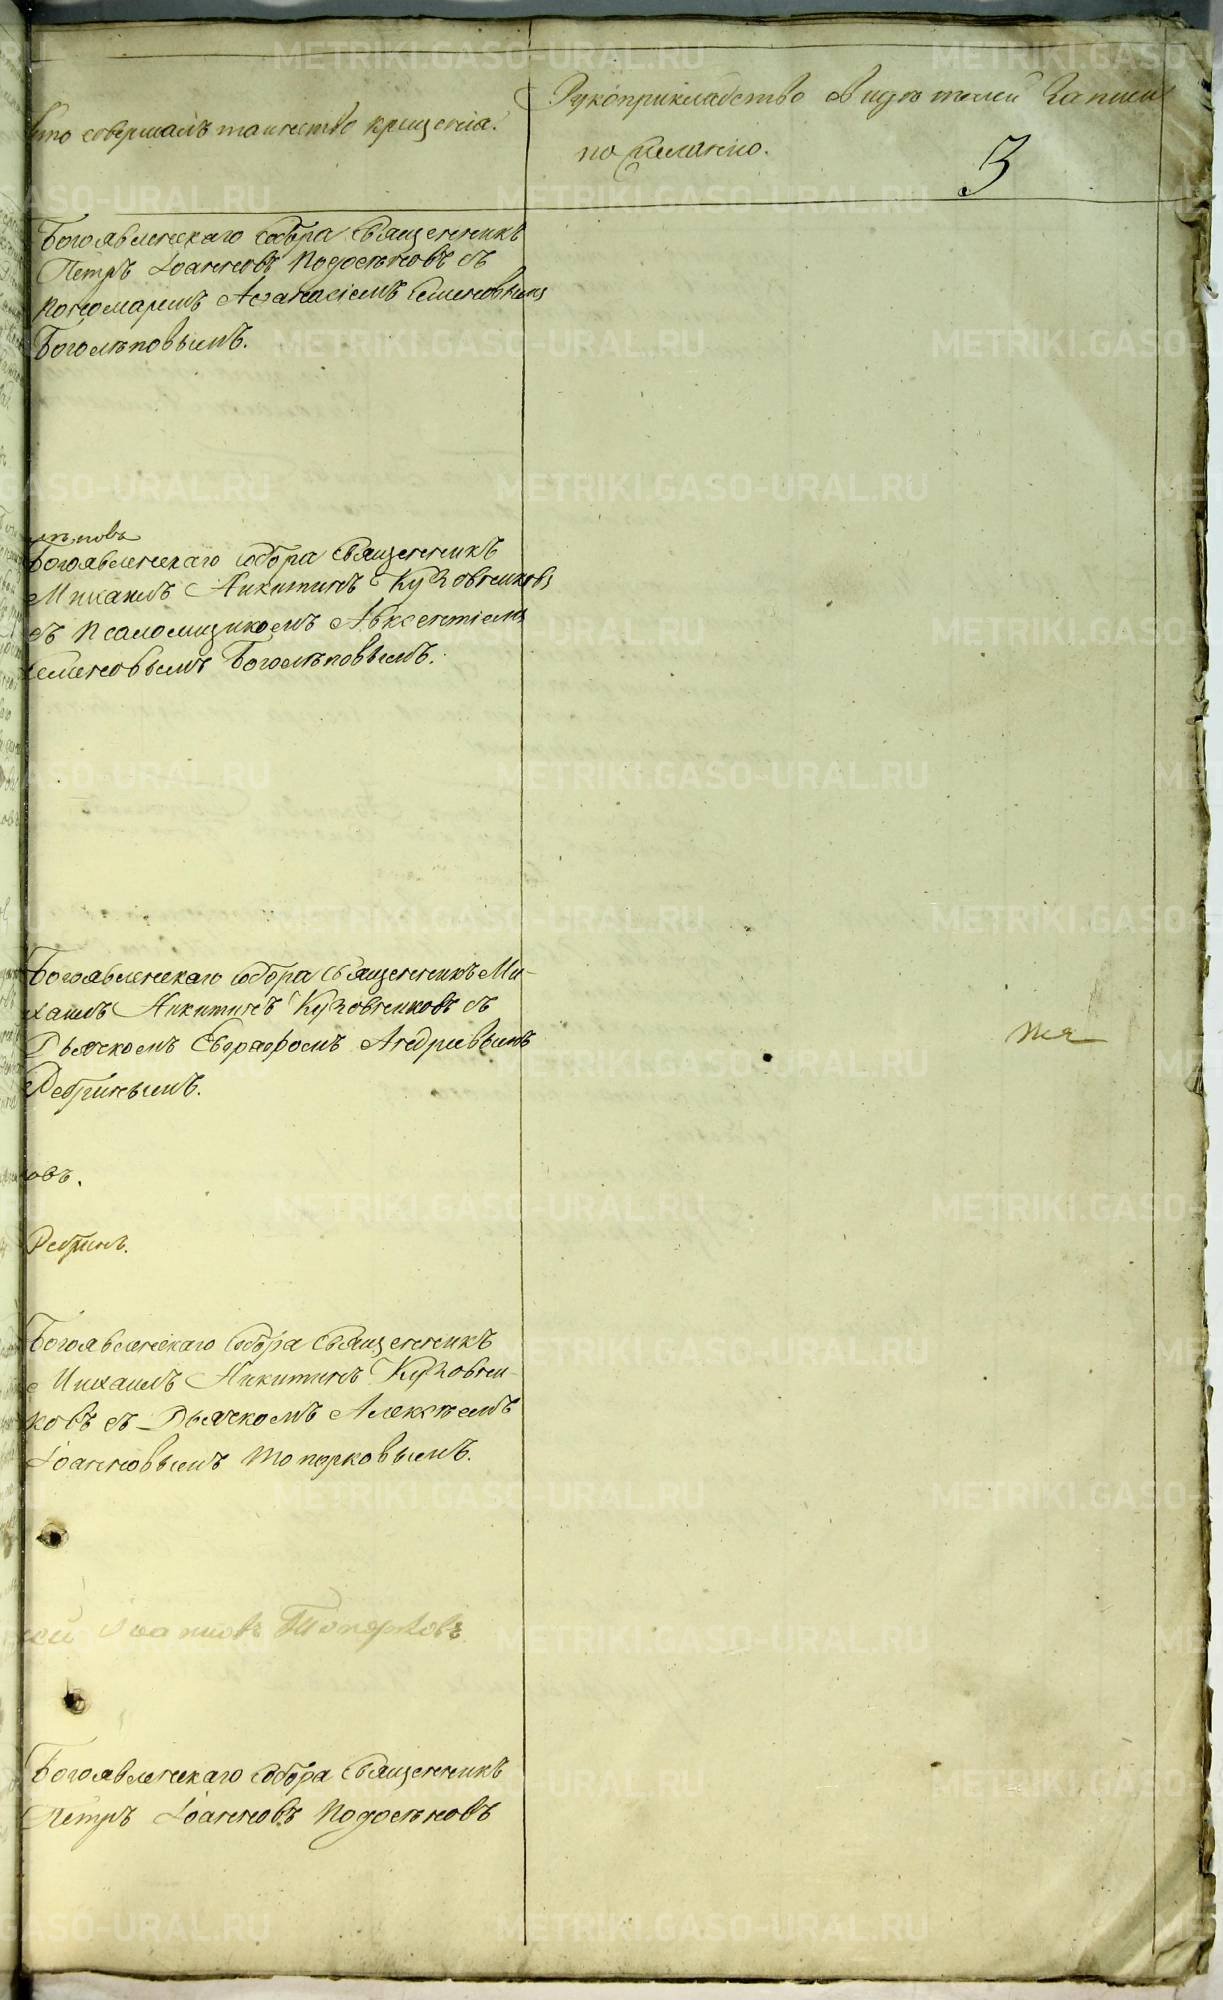 Кто совершалъ таинство крещенія.
Рукоприкладство свидѣтелей записи
по желанію.
3
Богоявленскаго собора Священникъ
Петръ Іоанновъ Подосеновъ съ
пономаремъ Аѳанасіемъ Семеновымъ
Боголѣповымъ.
лѣповъ
Богоявленскаго собора Священникъ
Михаилъ Никитинъ Кузовниковъ
съ псаломщикомъ Авксентіемъ
Семеновымъ Боголѣповымъ.
Богоявленскаго собора Священникъ Ми-
хаилъ Никитинъ Кузовниковъ съ
Дьячкомъ Евграфомъ Андреевымъ
Ребринымъ.
овъ.
Ребринъ.
Богоявленскаго Собора Священникъ
Михаилъ Никитинъ Кузовни-
ковъ съ Дьячкомъ Алексѣемъ
Іоанновымъ Топорковымъ.
сей Іоанновъ Топорковъ
Богоявленскаго Собора Священникъ
Петръ Іоанновъ Подосеновъ